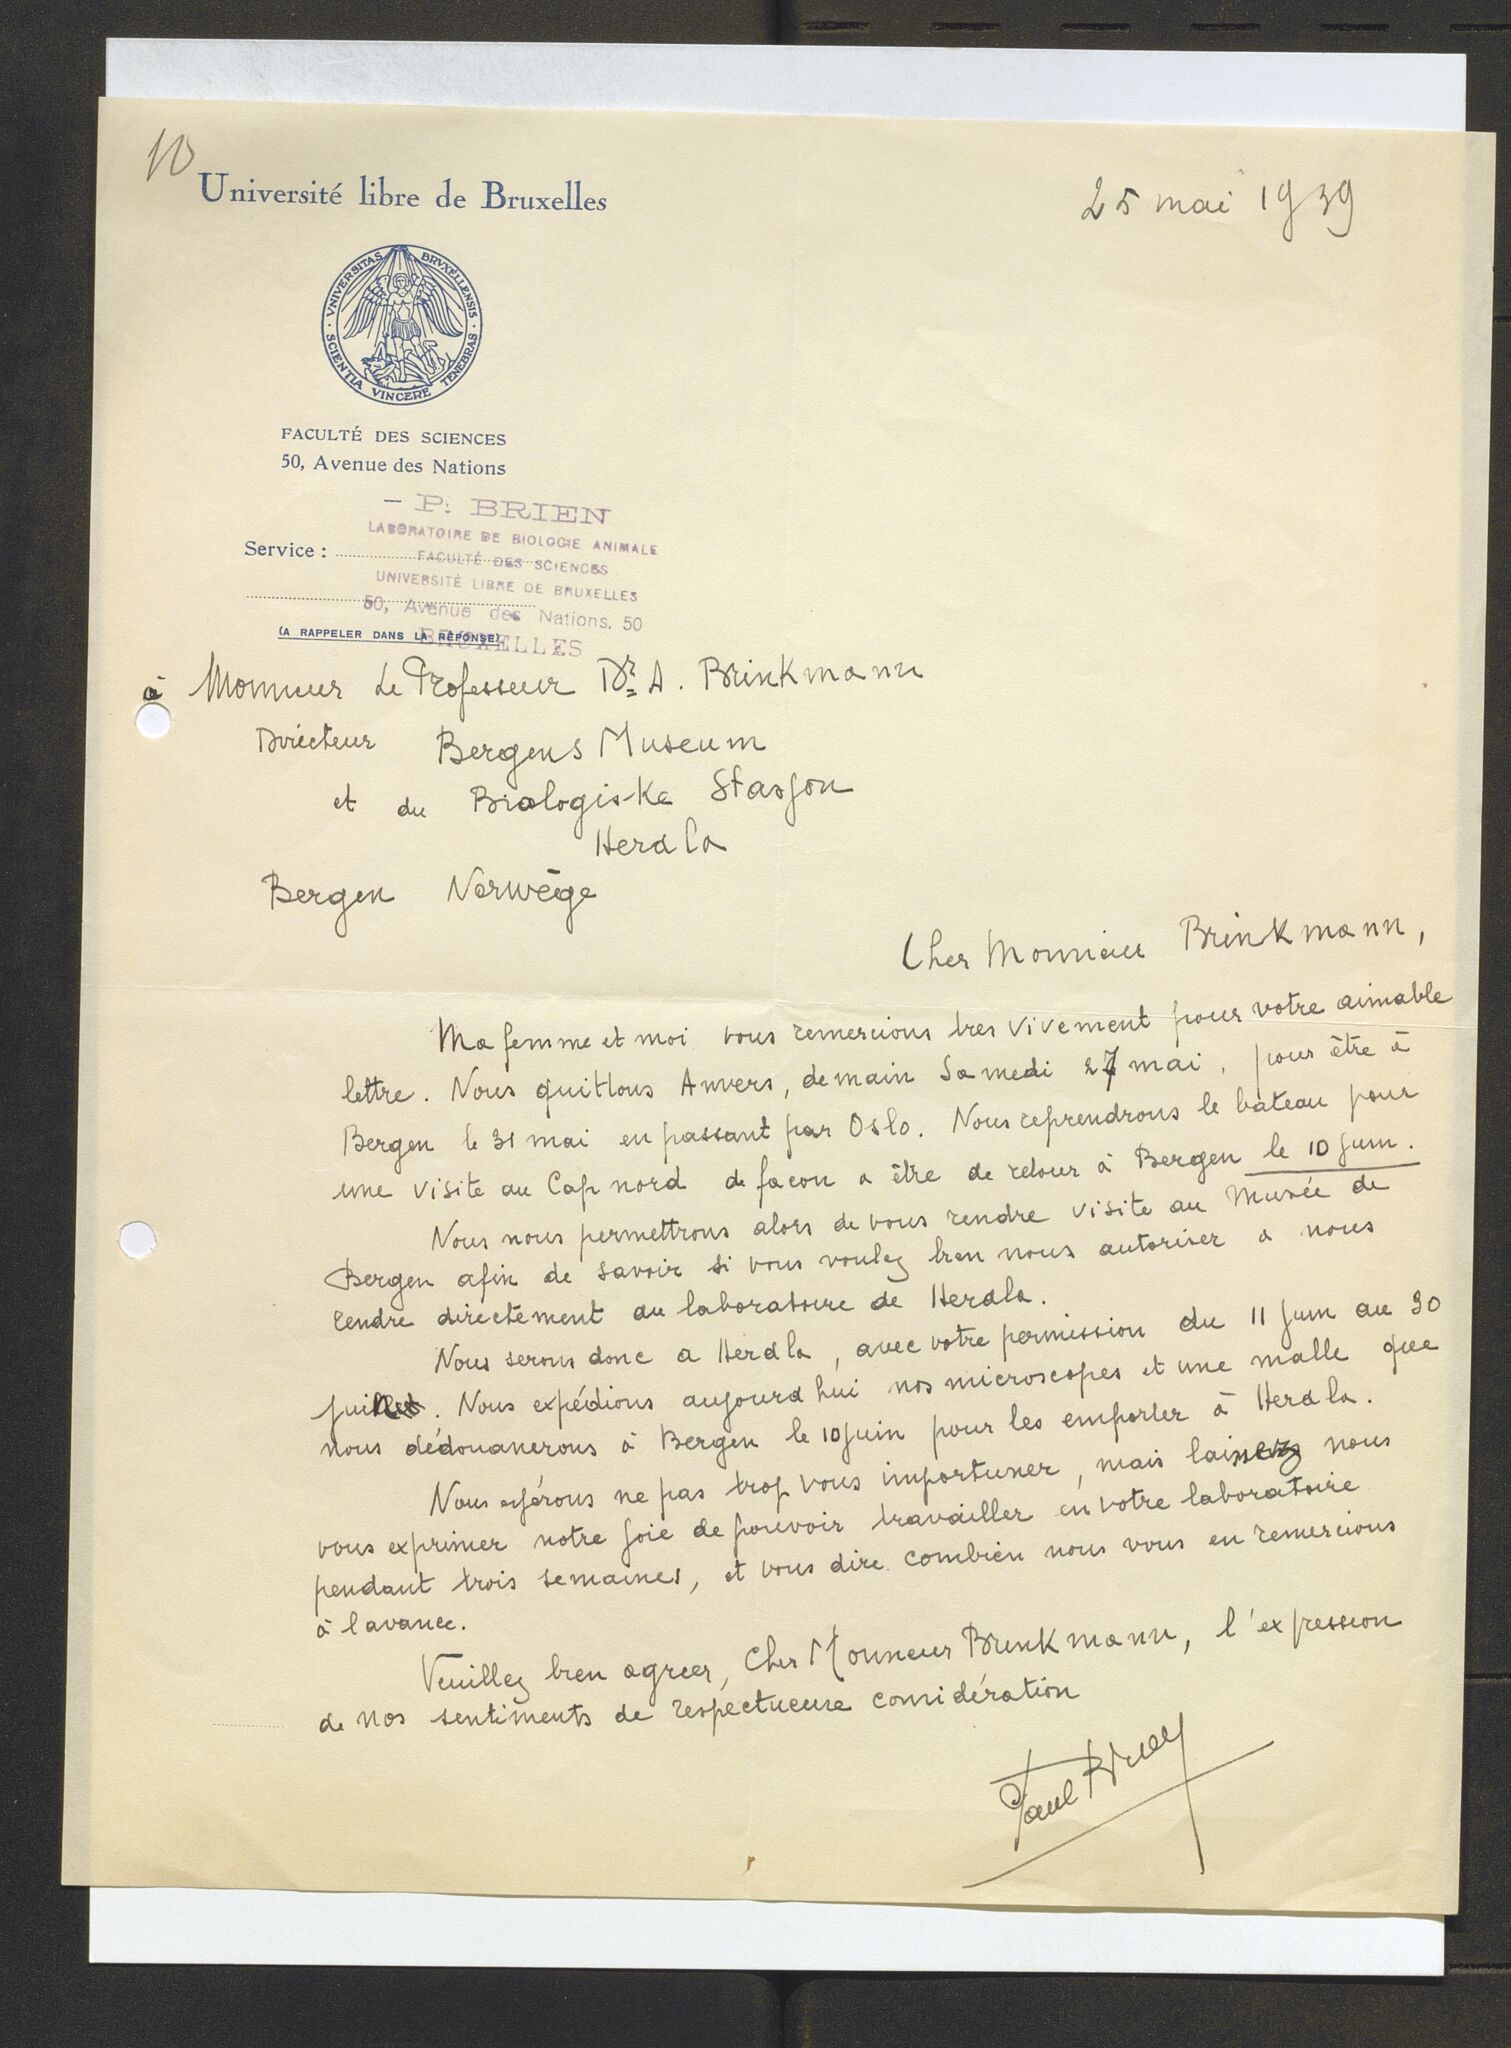 10
Université libre de Bruxelles
25 mai 1939
VNIVERSITAS BRVXELLENSIS
SCIENTIA VINCERE TENEBRAS
FACULTÉ DES SCIENCES
50, Avenue des Nations
P. BRIEN
LABORATOIRE DE BIOLOGIE ANIMALE
Service :
FACULTÉ DES SCIENCES
UNIVERSITÉ LIBRE DE BRUXELLES
50, Avenue des Nations, 50
(A RAPPELER DANS LA RÉPONSE)
BRUXELLES
à Monsieur Le Professeur Dr A. Brinkmann
Directeur Bergens Museum
et du Biologiske Stasjon
Herdla
Bergen Norwège
Cher Monsieur Brinkmann,
Ma femme et moi vous remercions tres vivement pour votre aimable
lettre. Nous quittons Anvers, demain Samedi 27 mai, pour être à
Bergen le 31 mai en passant par Oslo. Nous reprendrons le bateau pour
une visite au Cap nord de facon a être de retour à Bergen le 10 juin.
Nous nous permettrons alors de vous rendre visite au Musée de
Bergen afin de savoir si vous voulez bien nous autoriser a nous
rendre directement au laboratoire de Herdla.
Nous serons donc a Herdla, avec votre permission du 11 juin au 30
juillet. Nous expédions aujourd hui nos microscopes et une malle que
nous dédouanerons à Bergen le 10 juin pour les emporter à Herdla.
Nous espérons ne pas trop vous importuner, mais laissez nous
vous exprimer notre joie de pouvoir travailler en votre laboratoire
pendant trois semaines, et vous dire combien nous vous en remercions
à l'avance.
Veuillez bien agreer, Cher Monsieur Brinkmann, l'expression
de nos sentiments de respectueuse considération
Paul Brien